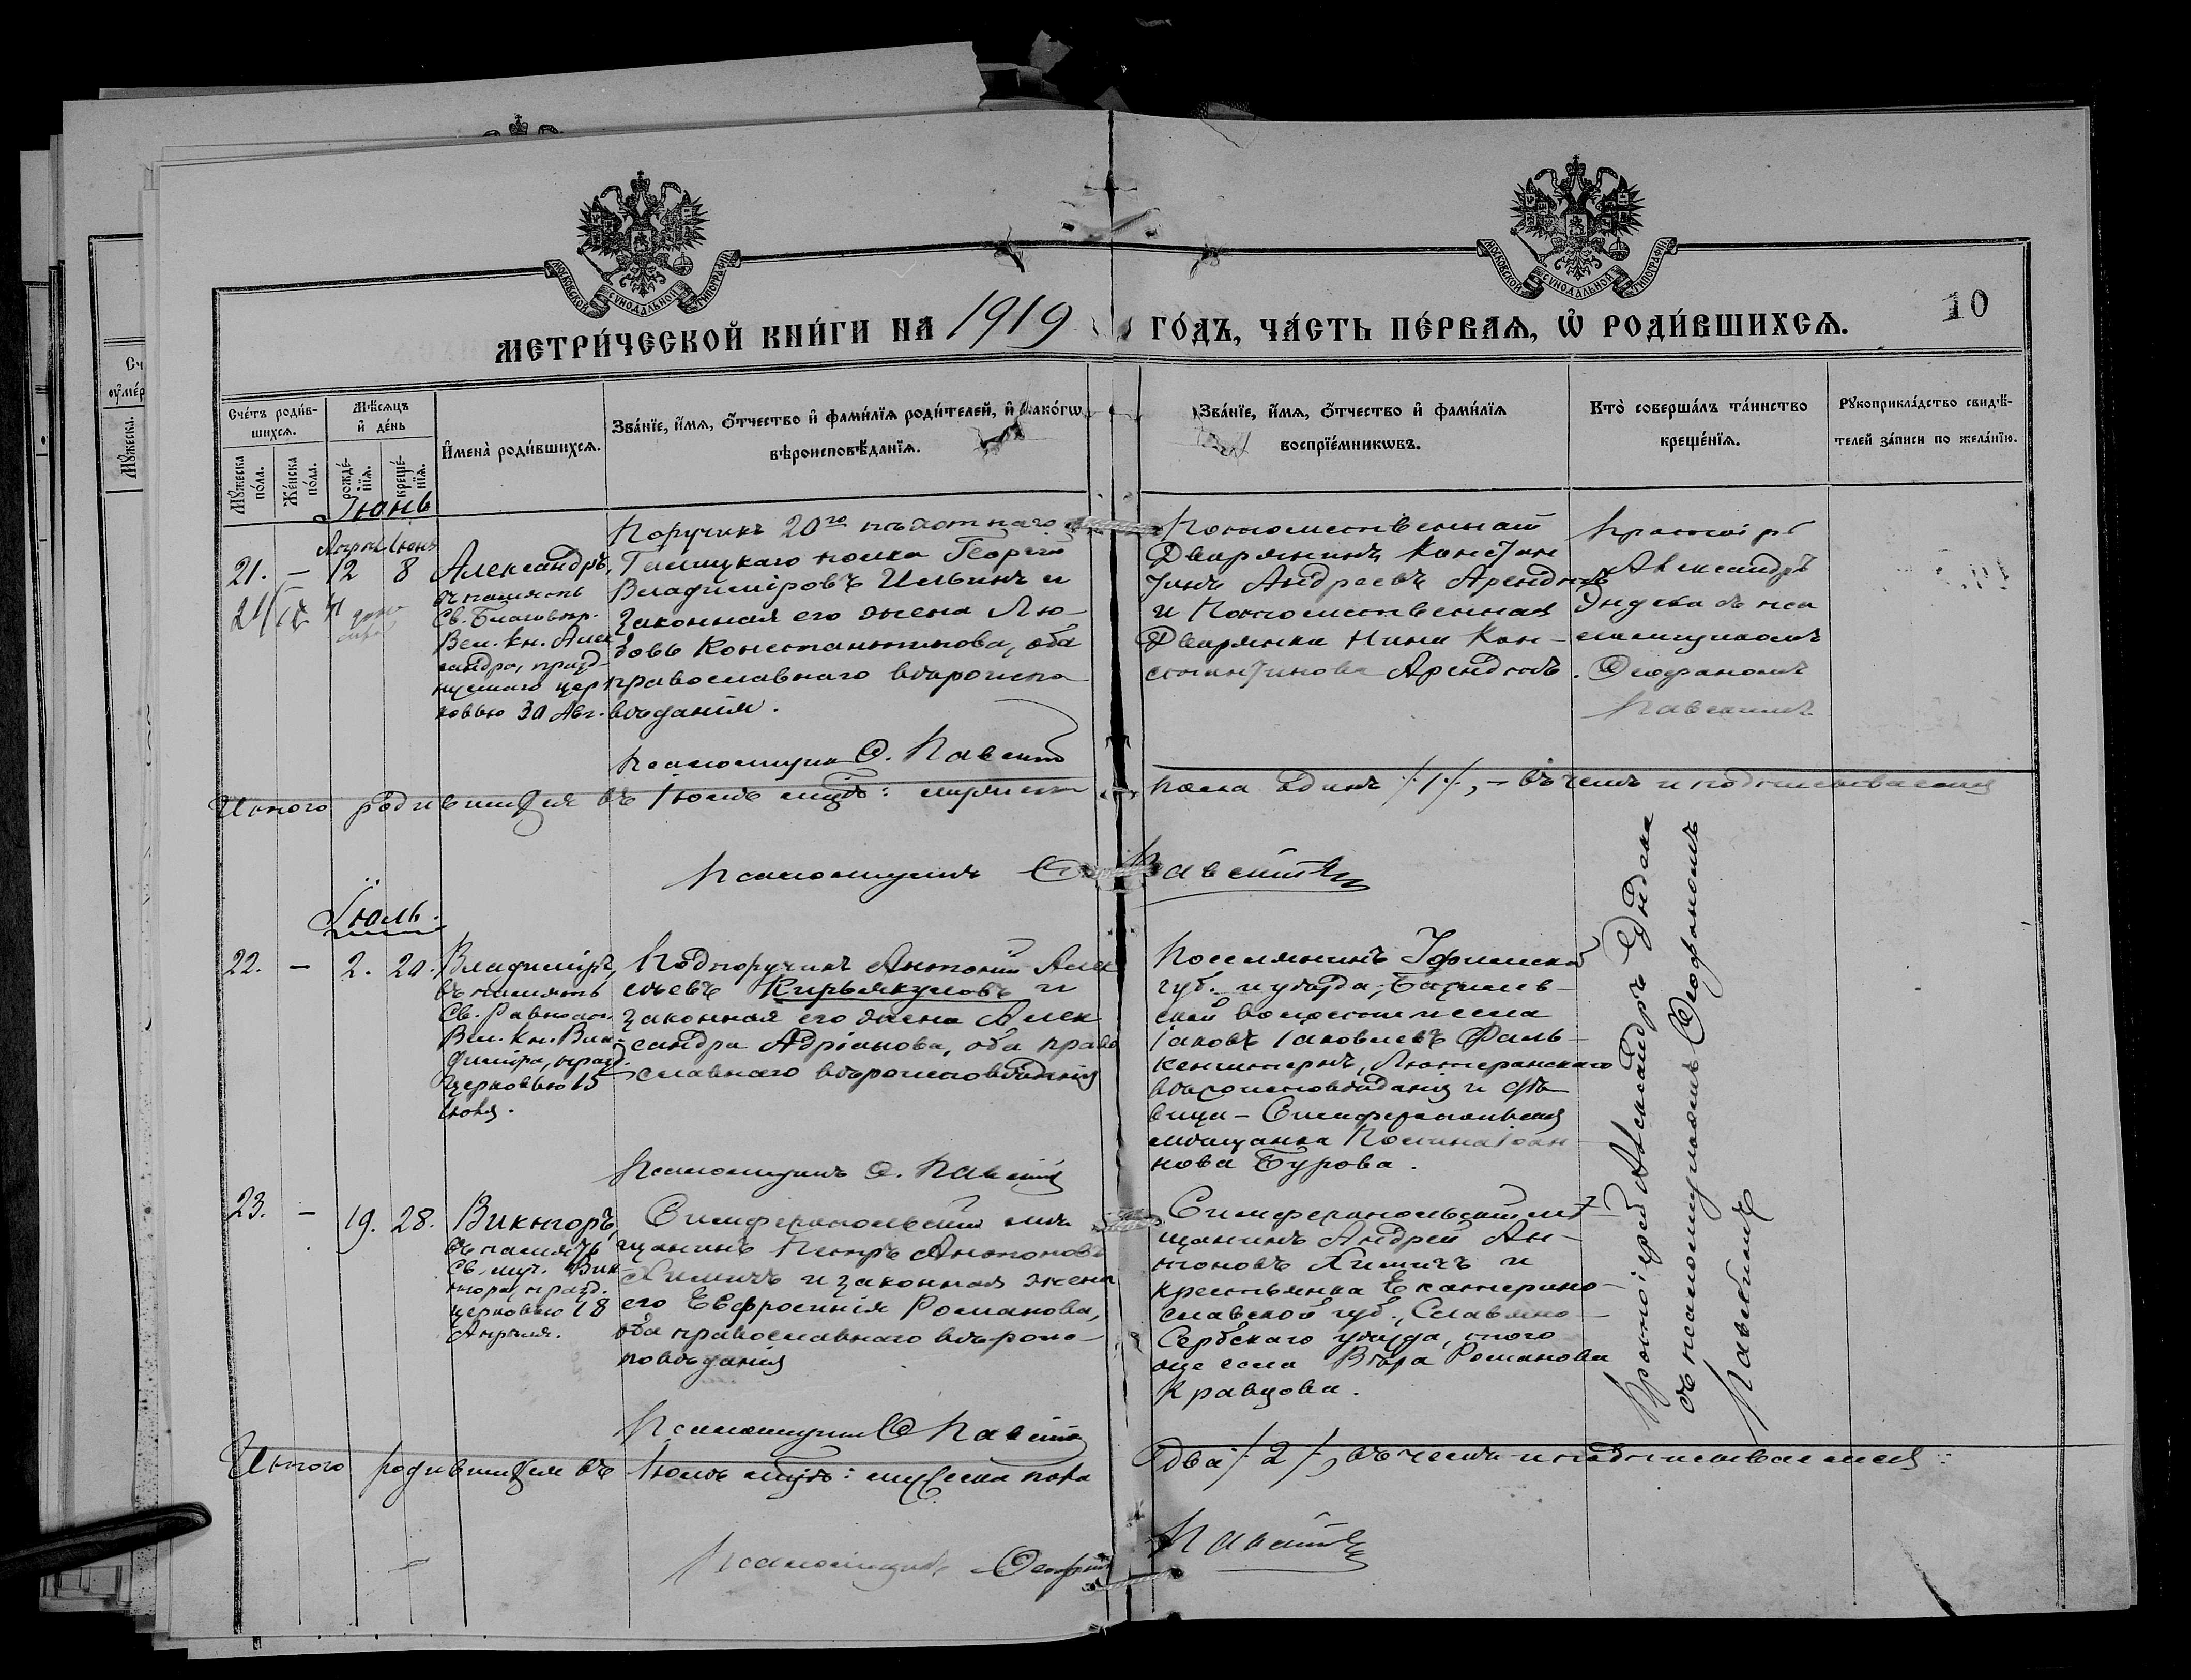 МОСКОВСКОЙ СУНОДАЛЬНОЙ ТИПОГРАФІИ
МОСКОВСКОЙ СУНОДАЛЬНОЙ ТИПОГРАФІИ
МЕТРИ́ЧЕСКОЙ КНИ́ГИ НА 1919 ГО́ДЪ, ЧА́СТЬ ПЕ́РВАЯ, Ѡ РОДИ́ВШИХСЯ.
10
Сче́тъ роди́в-
шихся.
Мѣ́сяцъ
и де́нь
Мꙋ́жеска
по́ла.
Же́нска
по́ла.
рожде́-
нїя.
креще́-
нїя.
Имена̀ роди́вшихся.
Зва́нїе, и́мя, ѻ́тчество и фами́лїя роди́телей, и како́гѡ
вѣроисповѣ́данїя.
Зва́нїе, и́мя, ѻ́тчество и фами́лїя
воспрїе́мникѡвъ.
Кто̀ соверша́лъ та́инство
креще́нїя.
Рꙋкоприкла́дство свидѣ́-
телей за́писи по жела́нїю.
Іюнь
Іюнь
21. — 12 8
Александръ,
въ память
Св. Благовѣр.
Вел. Кн. Алек
сандра, празд-
церковью 30 Авг.
Поручикъ 20го пѣхотнаго
Галицкаго полка Георгій
Владиміровъ Ильинъ и
законная его жена Лю-
бовь Константинова, оба
православнаго вѣроиспо
вѣданія.
Псаломщикъ Ѳ. Павскій
Потомственный
Дворянинъ Констан
тинъ Андреевъ Арендтъ
и Потомственная
Дворянка Нина Кон-
стантинова Арендтъ.
Протоіерей
Александръ
Эндека съ пса
ломщикомъ
Ѳеофаномъ
Итого родившихся въ Іюнѣ мцѣ: мужеска пола одинъ /1/, – въ чемъ и подписываемся
Псаломщикъ Ѳ. Павскій
Іюль.
22. — 2. 20.
Владиміръ,
въ память
Св. Равноап.
Вел. Кн. Вла-
диміра, празд.
церковью 15
Іюля.
Подпоручикъ Антоній Алек
сѣевъ Кирьякуловъ и
законная его жена Алек
сандра Адріанова, оба право
славнаго вѣроисповѣданія
Псаломщикъ Ѳ. Павскій
Поселянинъ Уфимской
губ. и уѣзда,
ской волости и села
Іаковъ Іаковлевъ Фаль-
Лютеранскаго
вѣроисповѣданія и дѣ-
вица – Симферопольская
мѣщанка Іоан-
нова Бурова.
23. — 19. 28.
Викторъ,
въ память
Св. муч. Вик-
тора, празд.
церковью 18
Апрѣля.
Симферопольскій мѣ-
щанинъ Петръ Антоновъ
Химичъ и законная жена
его Евфросинія Романова,
оба православнаго вѣроис-
повѣданія
Псаломщикъ Ѳ. Павскій
Симферопольскій мѣ-
щанинъ Андрей Ан-
тоновъ Химичъ и
крестьянка Екатерино-
славской губ., Славяно-
Сербскаго уѣзда, того
же села Вѣра Романова
Кравцова.
Протоіерей Александръ Эндека
съ псаломщикомъ Ѳеофаномъ
Итого родившихся въ Іюлѣ мцѣ: мужеска пола два /2/, въ чемъ и подписываемся:
Псаломщикъ Ѳеофанъ Павскій